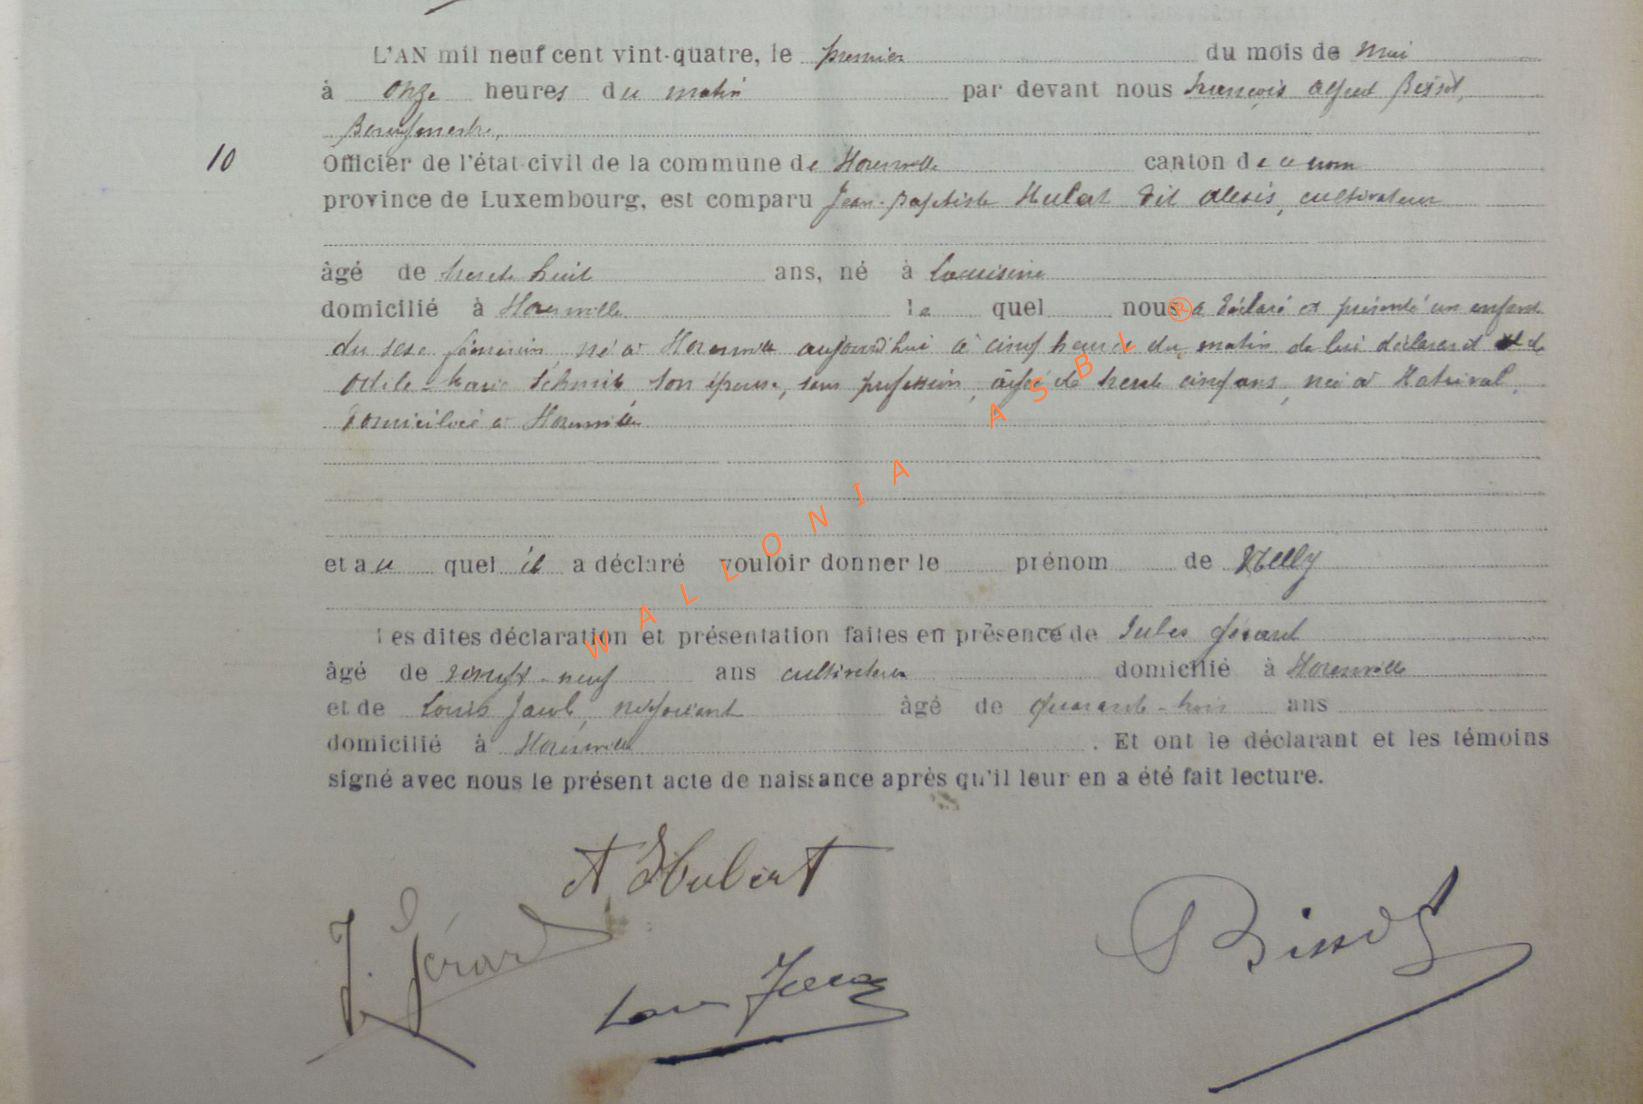 L'AN mil neuf cent vint-quatre, le premier du mois de Mai
à onze heures du matin par devant nous François Alfred Bissot,
Bourgmestre,
10
Officier de l'état-civil de la commune de Horenville canton de ce nom
province de Luxembourg, est comparu Jean-Baptiste Hubert dit Alexis, cultivateur
âgé de trente huit ans, né à Lacuisine
domicilié à le quel nous a déclaré et présenté un enfant
du sexe féminin, né à aujourd'hui à cinq heures du matin de lui déclarant et de
Odile-Marie Schmit son épouse, sans profession, âgée de trente cinq ans, née à Hatrival,
domiciliée à
et au quel il a déclaré vouloir donner le prénom de Nelly
Les dites déclaration et présentation faites en présence de Jules Gérard
âgé de vingt-neuf ans cultivateur domicilié à
et de Louis Jacob, négociant âgé de quarante-trois ans
domicilié à . Et ont le déclarant et les témoins
signé avec nous le présent acte de naissance après qu'il leur en a été fait lecture.
A Hubert
J. Gérard
Bissot
WALLONIA ASBL ®